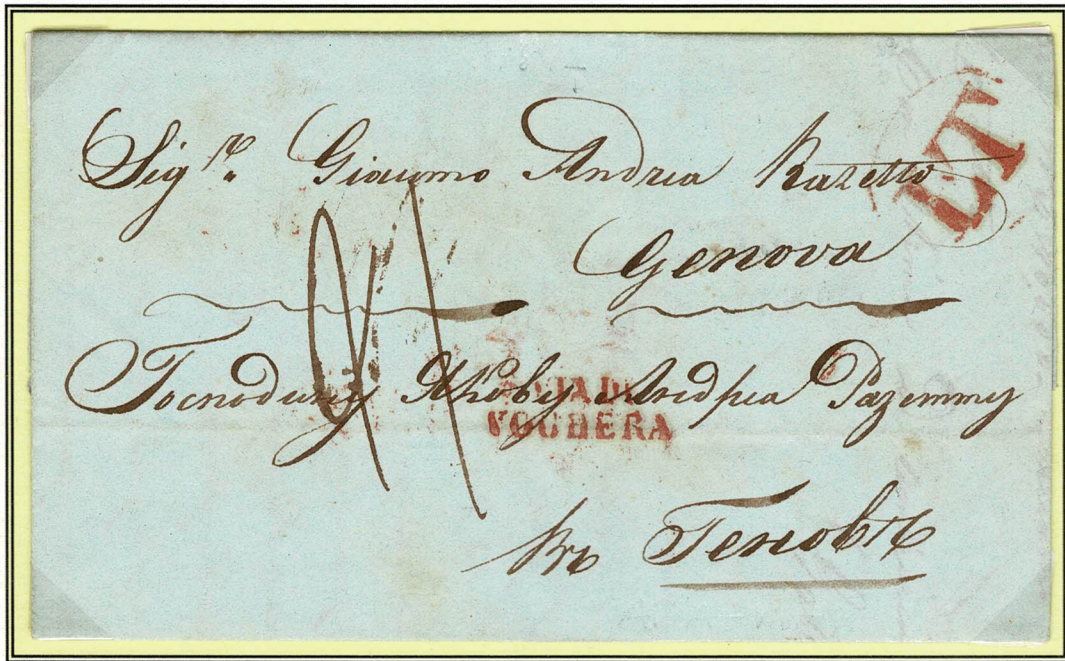 Sigre. Giacumo Andrea Razetto
LT
Genova
Господину Якову Андреа Разетту
VIA DI
VOGHERA
въ Геновѣ